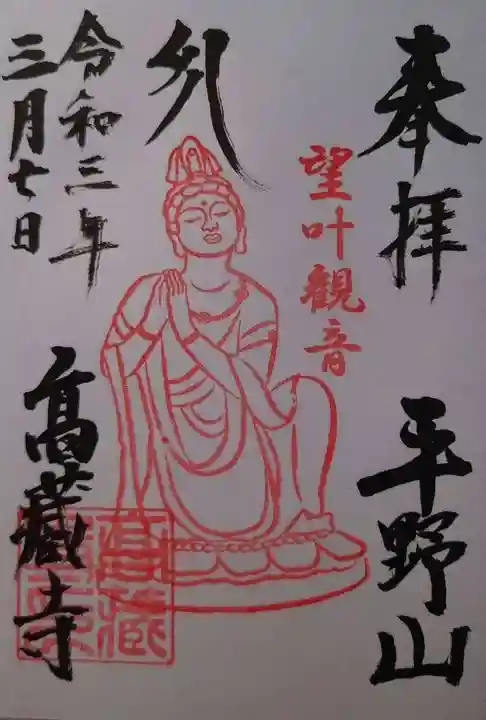 奉拝
平野山
望叶観音
令和三年
三月七日
高蔵寺